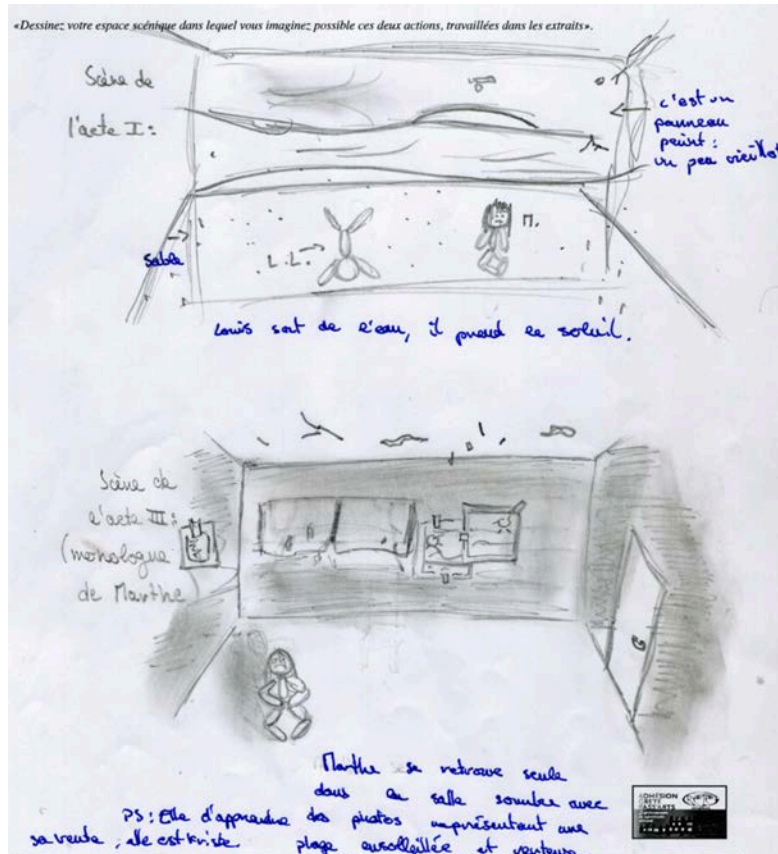 «Dessinez votre espace scénique dans lequel vous imaginez possible ces deux actions, travaillées dans les extraits».
Scène de
l'acte I :
c'est un
panneau
peint :
un peu vieillot
Sable
L. L.
M.
Louis sort de l'eau, il prend le soleil.
Scène de
l'acte III :
(monologue
de Marthe
Marthe se retrouve seule
dans la salle sombre avec
PS : Elle
des photos représentant une
sa vente ; elle est triste
plage ensolleillée et venteuse
ADHÉSION